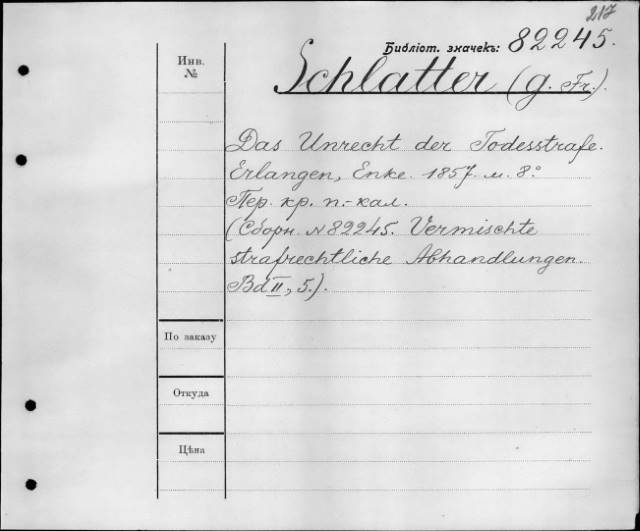 217
Библіот. значекъ: 82245.
Инв.
№
Schlatter (g. Fr.).
Das Unrecht der Todesstrafe.
Erlangen, Enke. 1857. м. 8°
Пер. кр. п.-кал.
(Сборн. №82245. Vermischte
strafrechtliche Abhandlungen.
Bd II, 5.).
По заказу
Откуда
Цѣна